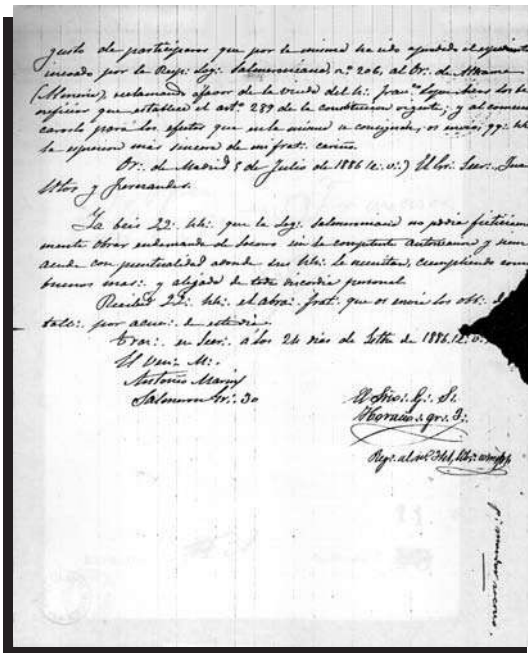 gusto de participaros que por la misma ha sido aprobado el expediente
incoado por la Resp: Log: Salomoniana, nº 206, al Or: de Alhama
(Almería) reclamando afavor de la viuda del h: Franco Lopez los be
neficios que establece el artº 289 de la constitucion vigente; y al comuni
caroslo para los efectos que en la misma se consignan, os envia, qq: hh:
la espresion más sincera de mi frat: cariño.
Or: de Madrid 5 de Julio de 1886 (e: v:) El Gr: Secr: Juan
Utor y Fernandez.
Ya beis QQ: hh: que la Log: Salomoniana no podia
mente obrar en demanda de socorro sin la competente autorizacion y siempre
acude con puntualidad adonde sus hh: la necesitan, cumpliendo como
buenos mas: y alejada de toda discordia personal.
Recibid QQ: hh: el abra: frat: que os envia los obb: de
tall: por acuer: de este dia.
Traz: en Secr: a los 24 dias de Setbe de 1886 (e: v:)
El Ven: M:
Antonio
Salomon gr: 30
El Srio: G: S:
Horacio: gr: 3:
Reg: al nº